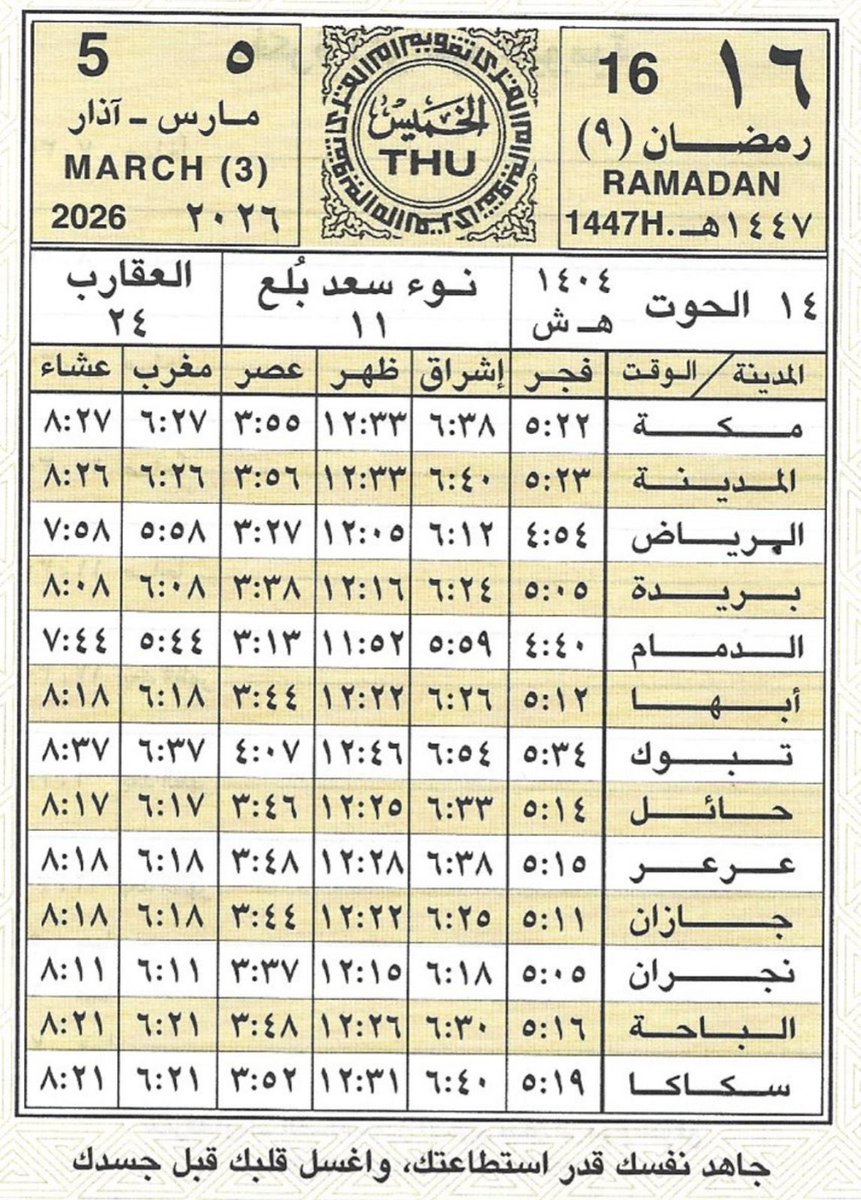 ١٦ 16
رمضان (٩)
RAMADAN
١٤٤٧هـ. 1447H
الخميس
THU
5 ٥
مارس - آذار
MARCH (3)
2026 ٢٠٢٦
١٤ الحوت ١٤٠٤ هـ ش
نوء سعد بُلع
١١
العقارب
٢٤
المدينة / الوقت فجر إشراق ظهر عصر مغرب عشاء
مكة ٥:٢٢ ٦:٣٨ ١٢:٣٣ ٣:٥٥ ٦:٢٧ ٨:٢٧
المدينة ٥:٢٣ ٦:٤٠ ١٢:٣٣ ٣:٥٦ ٦:٢٦ ٨:٢٦
الرياض ٤:٥٤ ٦:١٢ ١٢:٠٥ ٣:٢٧ ٥:٥٨ ٧:٥٨
بريدة ٥:٠٥ ٦:٢٤ ١٢:١٦ ٣:٣٨ ٦:٠٨ ٨:٠٨
الدمام ٤:٤٠ ٥:٥٩ ١١:٥٢ ٣:١٣ ٥:٤٤ ٧:٤٤
أبها ٥:١٢ ٦:٢٦ ١٢:٢٢ ٣:٤٤ ٦:١٨ ٨:١٨
تبوك ٥:٣٤ ٦:٥٤ ١٢:٤٦ ٤:٠٧ ٦:٣٧ ٨:٣٧
حائل ٥:١٤ ٦:٣٣ ١٢:٢٥ ٣:٤٦ ٦:١٧ ٨:١٧
عرعر ٥:١٥ ٦:٣٨ ١٢:٢٨ ٣:٤٨ ٦:١٨ ٨:١٨
جازان ٥:١١ ٦:٢٥ ١٢:٢٢ ٣:٤٤ ٦:١٨ ٨:١٨
نجران ٥:٠٥ ٦:١٨ ١٢:١٥ ٣:٣٧ ٦:١١ ٨:١١
الباحة ٥:١٦ ٦:٣٠ ١٢:٢٦ ٣:٤٨ ٦:٢١ ٨:٢١
سكاكا ٥:١٩ ٦:٤٠ ١٢:٣١ ٣:٥٢ ٦:٢١ ٨:٢١
جاهد نفسك قدر استطاعتك، واغسل قلبك قبل جسدك